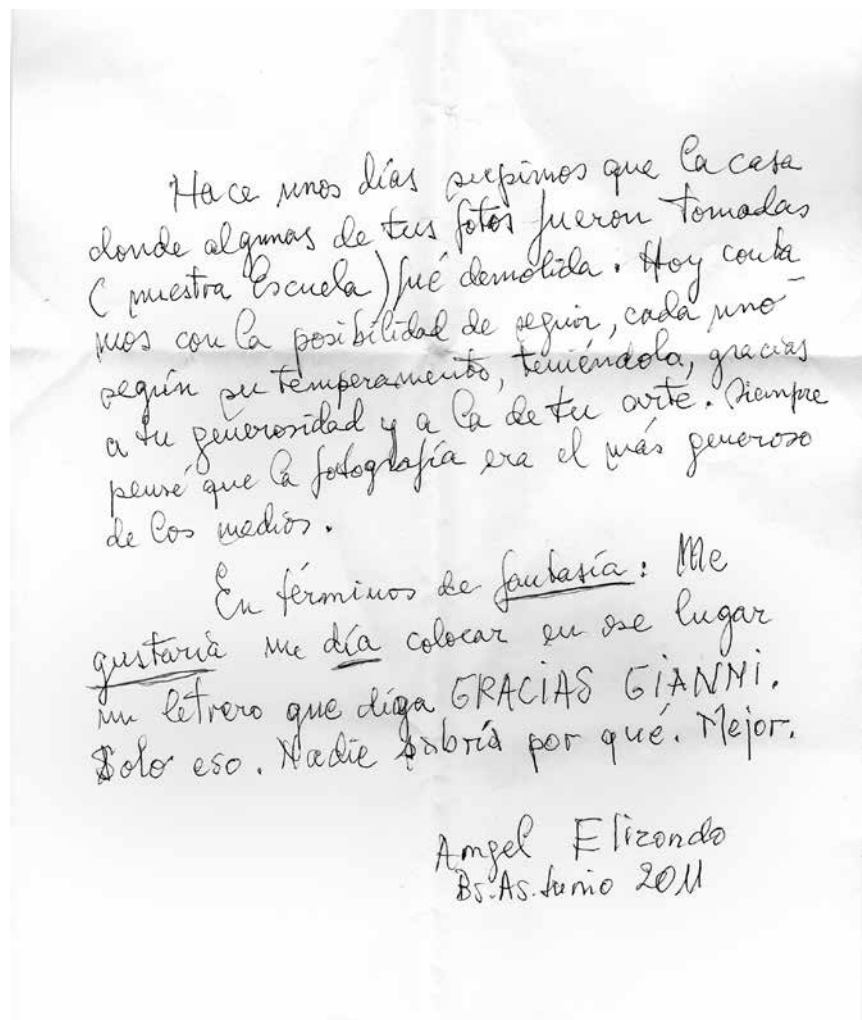 Hace unos días supimos que la casa
donde algunas de tus fotos fueron tomadas
( nuestra Escuela) fué demolida. Hoy conta
mos con la posibilidad de seguir, cada uno
según su temperamento, teniéndola, gracias
a tu generosidad y a la de tu arte. Siempre
pensé que la fotografía era el más generoso
de los medios.
En términos de fantasía: Me
gustaría un día colocar en ese lugar
un letrero que diga GRACIAS GIANNI.
Solo eso. Nadie sabría por qué. Mejor.
Angel Elizondo
Bs.As. Junio 2011